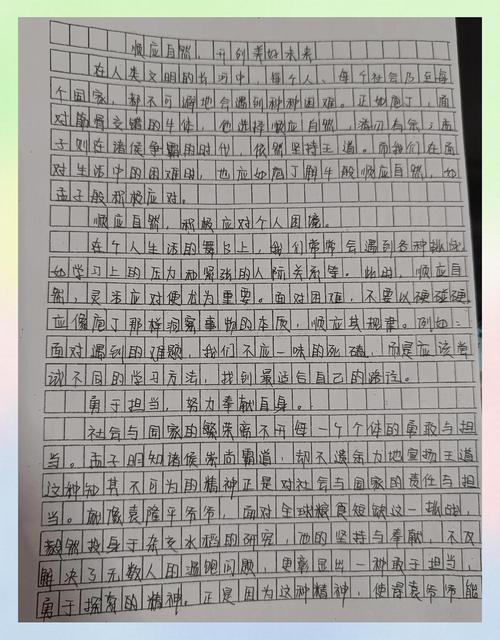 顺应自然，开创美好未来
在人类文明的长河中，每个人、每个社会乃至每
个国家，都不可避地会遇到种种困难。正如庖丁，面
对筋骨交错的牛体，他选择顺应自然，游刃有余；孟
子则在诸侯争霸的时代，依然坚持王道。而我们在面
对生活中的困难时，也应如庖丁解牛般顺应自然，如
孟子般积极应对。
顺应自然，积极应对个人困境。
在个人生活的舞台上，我们常常会遇到各种挑战
如学习上的压力和紧张的人际关系等。此时，顺应自
然，灵活应对便尤为重要。面对困难，不要以硬碰硬
应像庖丁那样洞察事物的本质，顺应其规律。例如：
面对遇到的难题，我们不应一味的死磕，而是应该尝
试不同的学习方法，找到最适合自己的路径。
勇于担当，努力奉献自身。
社会与国家的繁荣离不开每一个个体的勇敢与担
当。孟子明知诸侯崇尚霸道，却不遗余力地宣扬王道
这种知其不可为的精神正是对社会与国家的责任与担
当。就像袁隆平爷爷，面对全球粮食短缺这一挑战，
毅然投身于杂交水稻的研究，他的坚持与奉献，不仅
解决了无数人的温饱问题，更彰显出一种敢于担当，
勇于探索的精神。正是因为这种精神，使得袁爷爷能